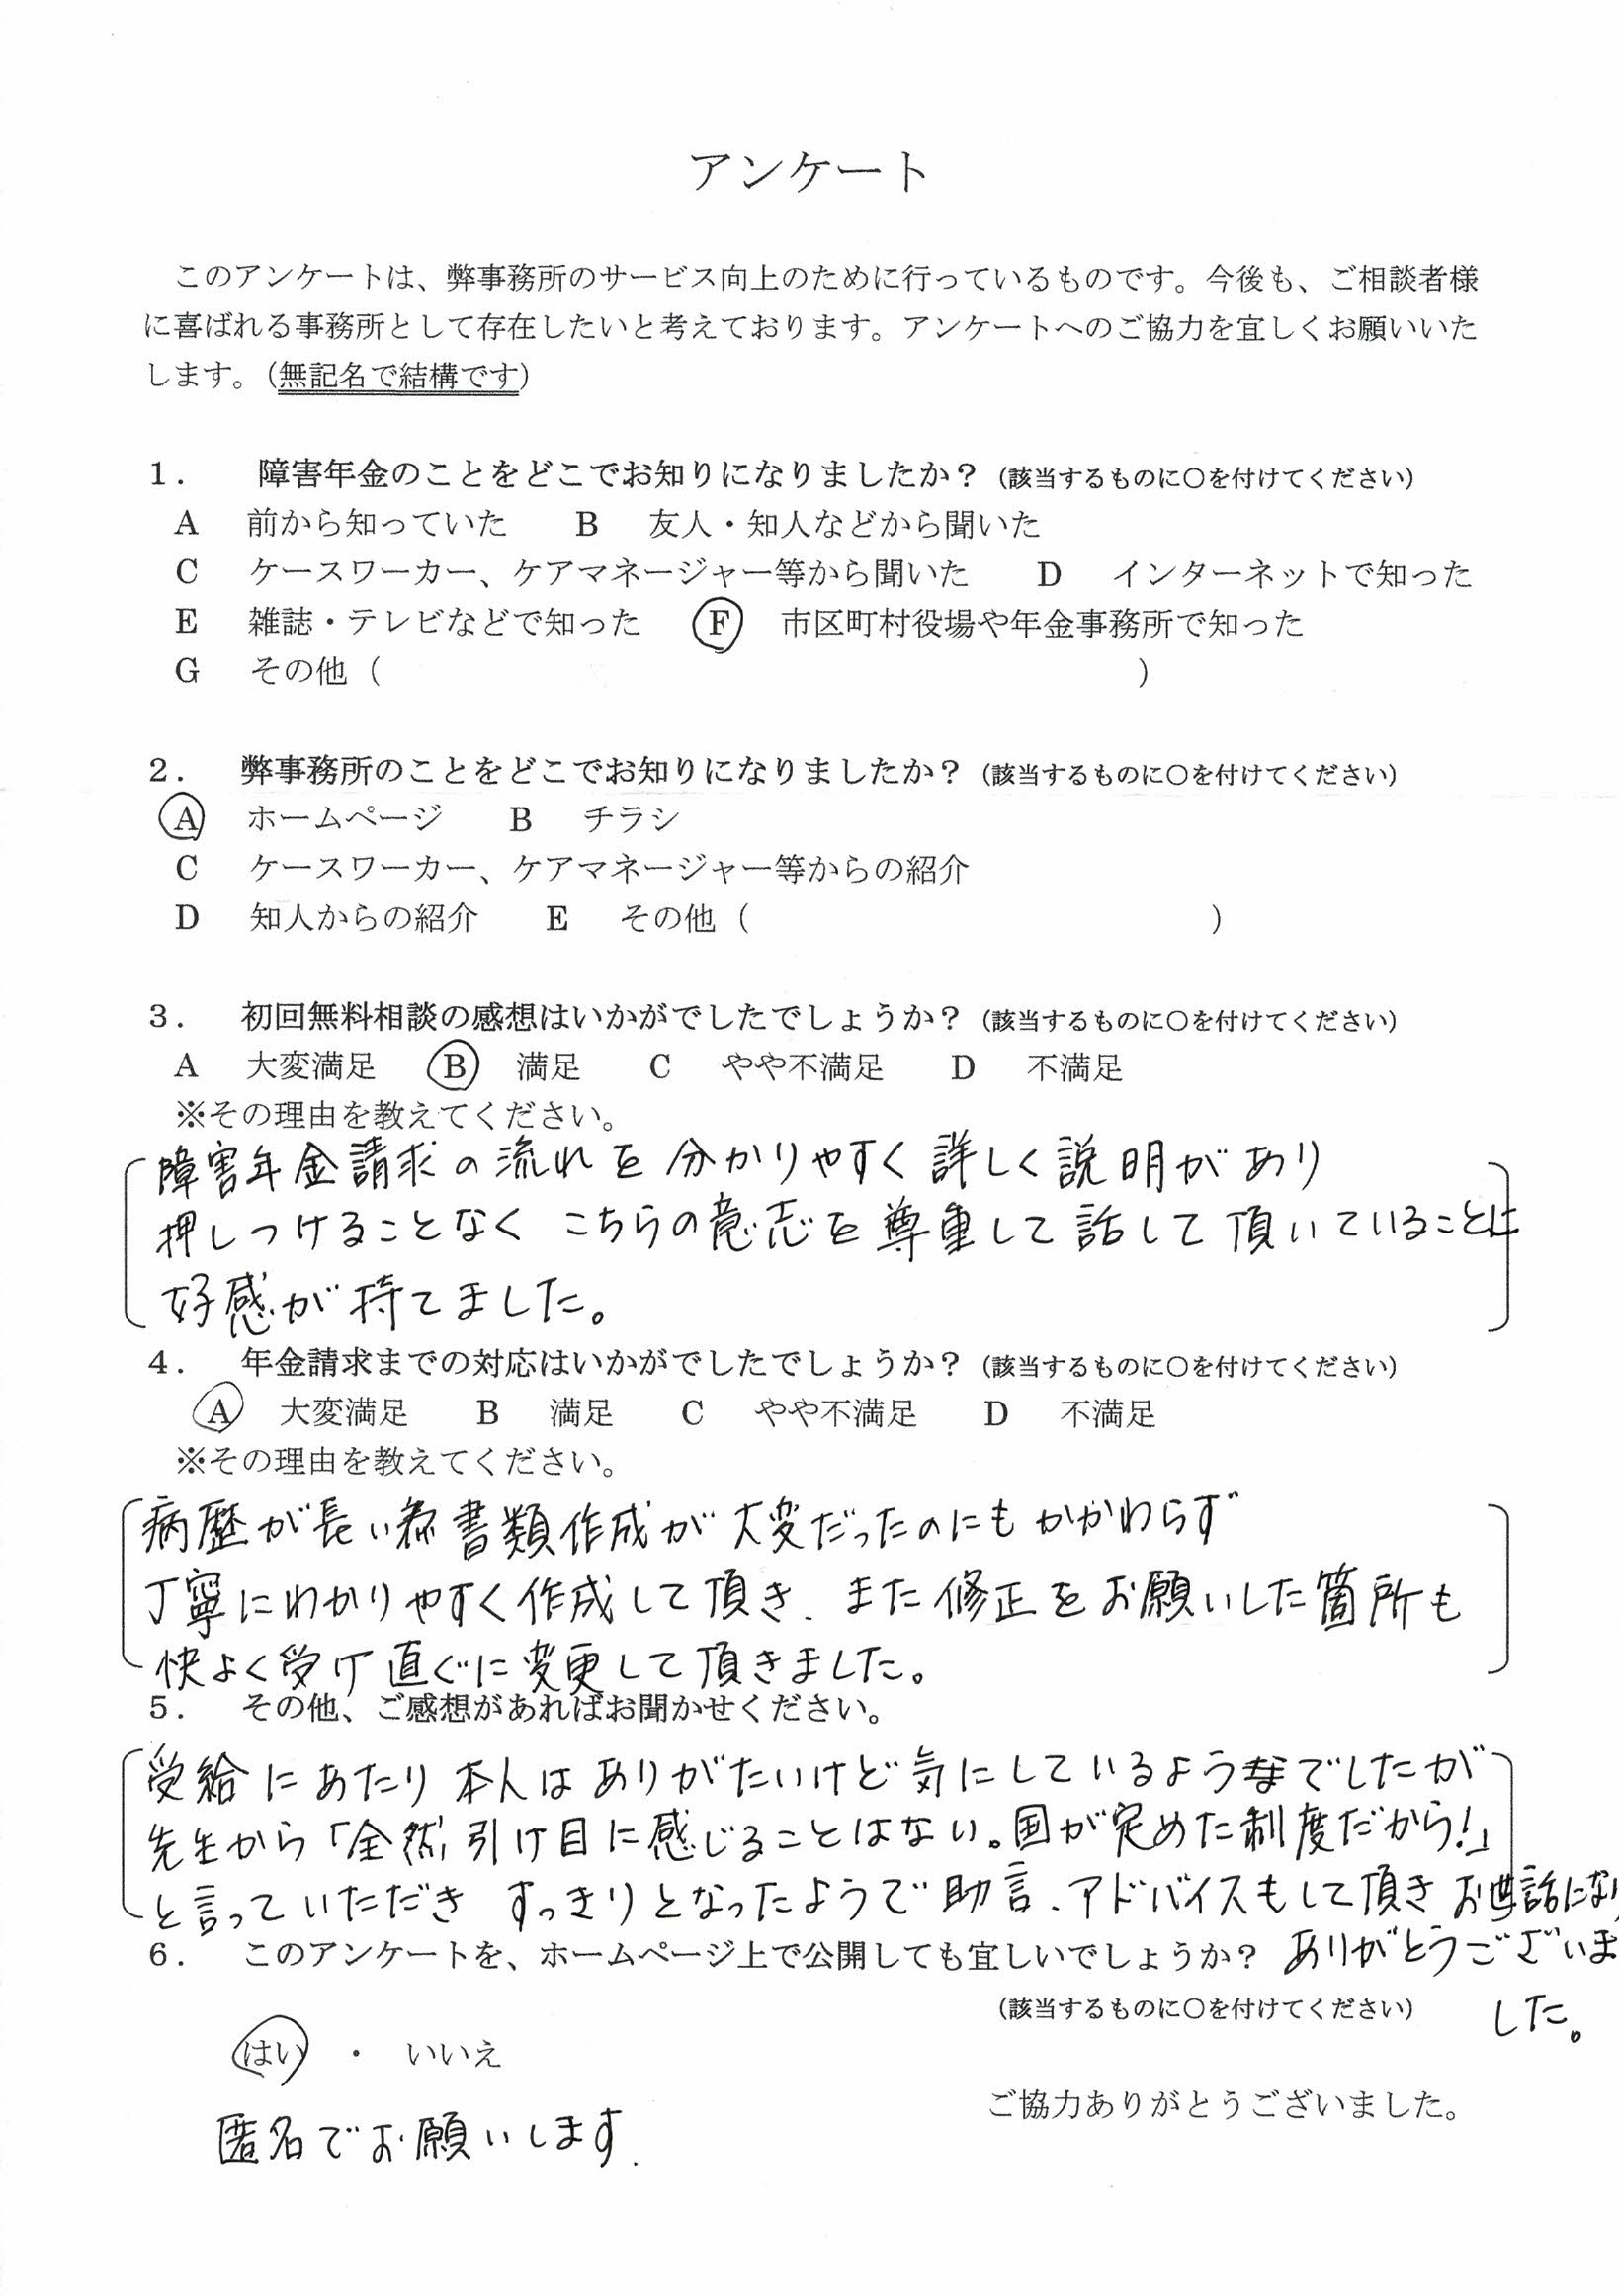 アンケート
このアンケートは、弊事務所のサービス向上のために行っているものです。今後も、ご相談者様
に喜ばれる事務所として存在したいと考えております。アンケートへのご協力を宜しくお願いいた
します。（無記名で結構です）
１． 障害年金のことをどこでお知りになりましたか？（該当するものに○を付けてください）
A 前から知っていた B 友人・知人などから聞いた
C ケースワーカー、ケアマネージャー等から聞いた D インターネットで知った
E 雑誌・テレビなどで知った F 市区町村役場や年金事務所で知った
G その他（ ）
２． 弊事務所のことをどこでお知りになりましたか？（該当するものに○を付けてください）
A ホームページ B チラシ
C ケースワーカー、ケアマネージャー等からの紹介
D 知人からの紹介 E その他（ ）
３． 初回無料相談の感想はいかがでしたでしょうか？（該当するものに○を付けてください）
A 大変満足 B 満足 C やや不満足 D 不満足
※その理由を教えてください。
障害年金請求の流れを分かりやすく詳しく説明があり
押しつけることなく こちらの意志を尊重して話して頂いていることに
好感が持てました。
４． 年金請求までの対応はいかがでしたでしょうか？（該当するものに○を付けてください）
A 大変満足 B 満足 C やや不満足 D 不満足
※その理由を教えてください。
病歴が長い為書類作成が大変だったのにもかかわらず
丁寧にわかりやすく作成して頂き、また修正をお願いした箇所も
快よく受け直ぐに変更して頂きました。
５． その他、ご感想があればお聞かせください。
受給にあたり本人はありがたいけど気にしているようでしたが
先生から「全然引け目に感じることはない。国が定めた制度だから!」
と言っていただき すっきりとなったようで助言、アドバイスもして頂きお世話になり
６． このアンケートを、ホームページ上で公開しても宜しいでしょうか？ ありがとうございま
（該当するものに○を付けてください） した。
はい ・ いいえ
ご協力ありがとうございました。
匿名でお願いします.